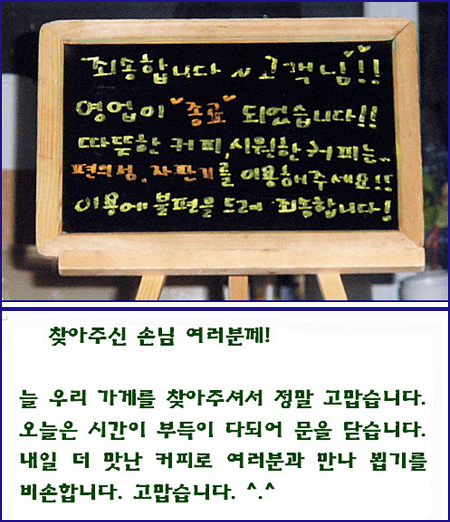 죄송합니다 ~ 고객님!!
영업이 "종료" 되었습니다!!
따뜻한 커피, 시원한 커피는..
편의점, 자판기를 이용해주세요!!
이용에 불편을 드려 죄송합니다!
찾아주신 손님 여러분께!
늘 우리 가게를 찾아주셔서 정말 고맙습니다.
오늘은 시간이 부득이 다되어 문을 닫습니다.
내일 더 맛난 커피로 여러분과 만나 뵙기를
비손합니다. 고맙습니다. ^.^